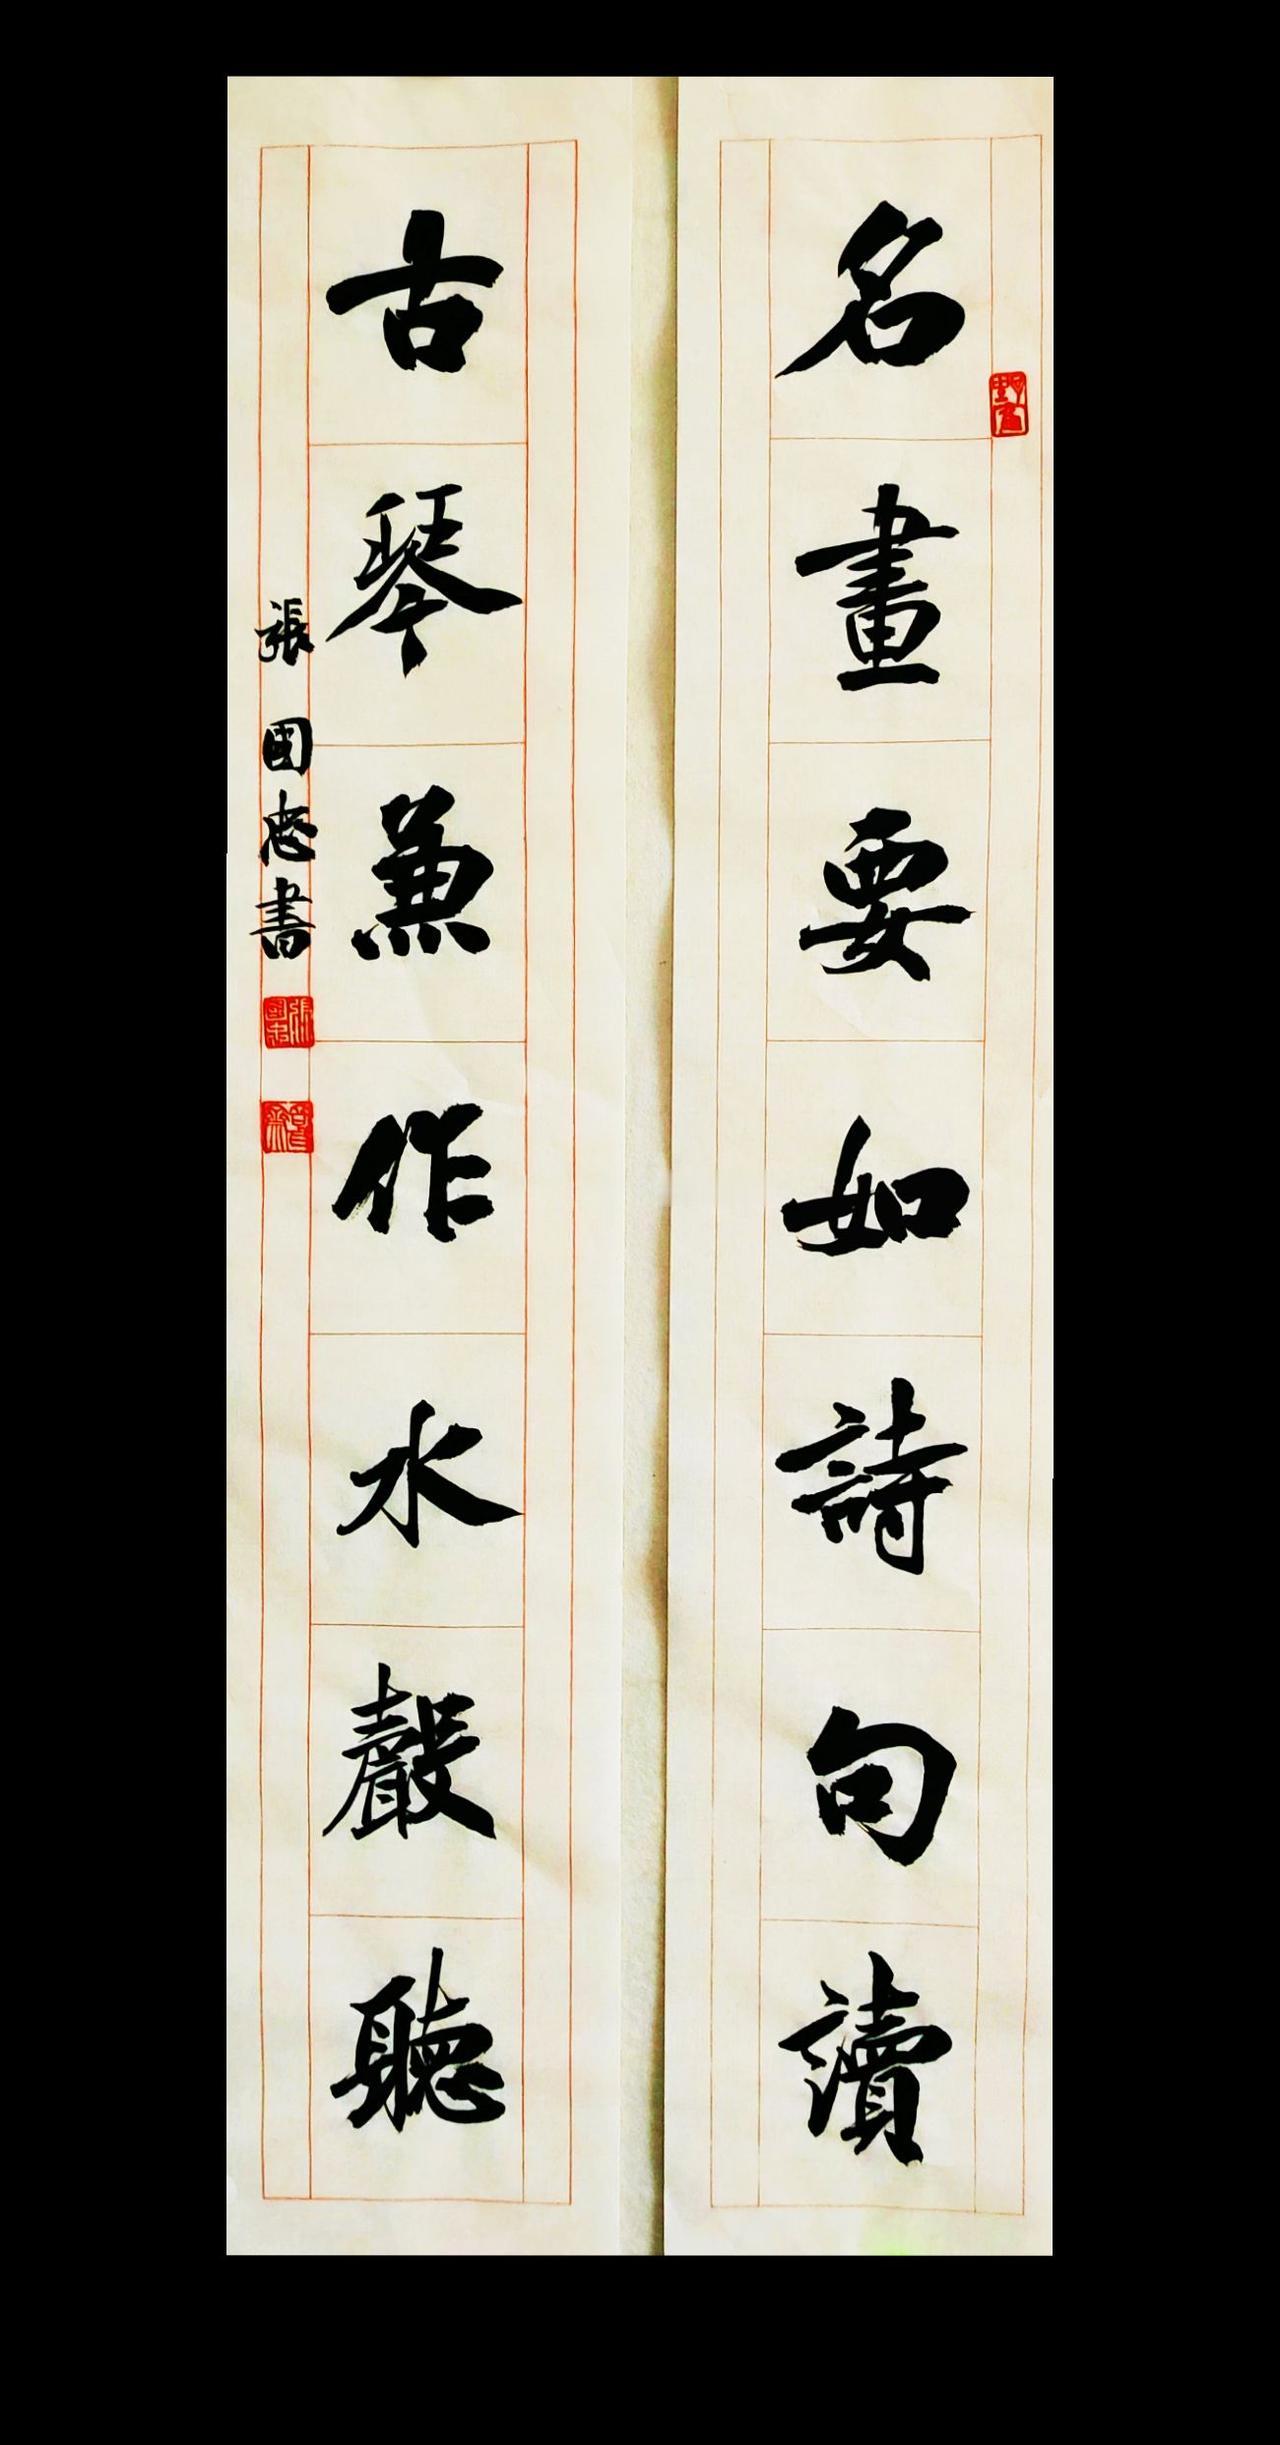 名畫要如詩句讀
古琴兼作水聲聽
張國忠書